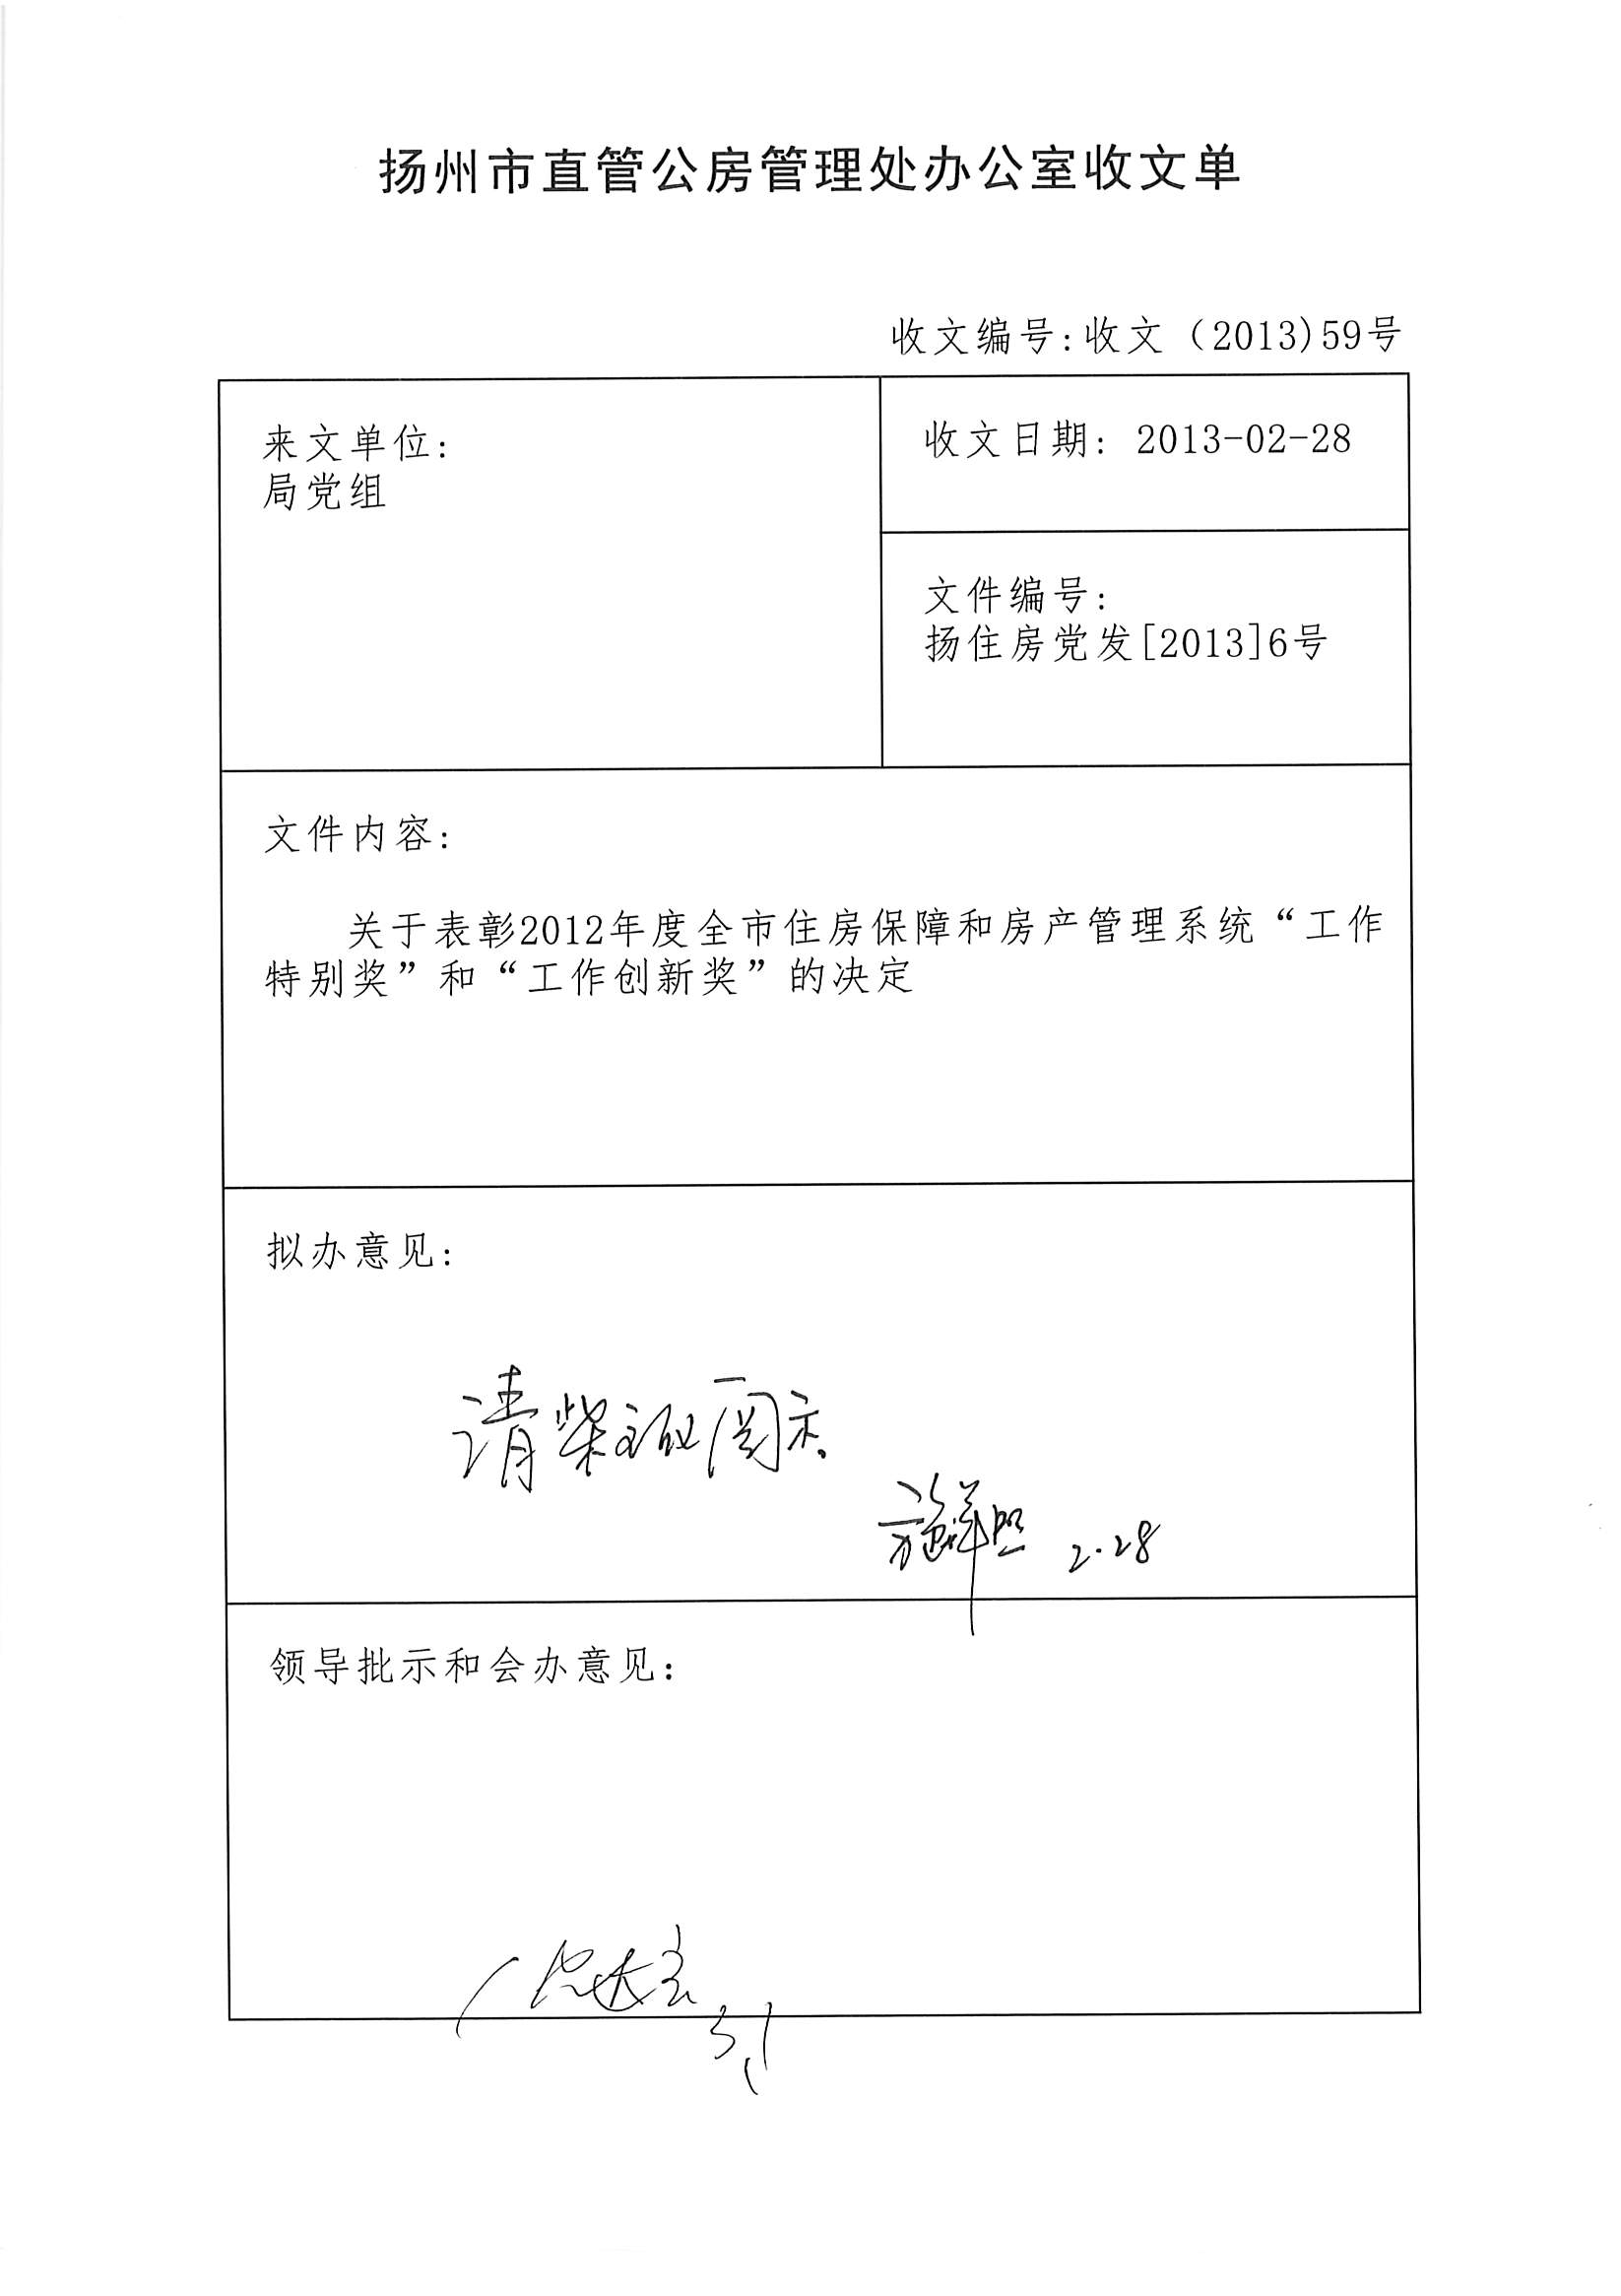 扬州市直管公房管理处办公室收文单
收文编号:收文（2013)59号
来文单位:
局党组
收文日期: 2013-02-28
文件编号:
扬住房党发[2013]6号
文件内容:
关于表彰2012年度全市住房保障和房产管理系统“工作
特别奖”和“工作创新奖”的决定
拟办意见:
请柴主政阅示
2.28
领导批示和会办意见:
3.1